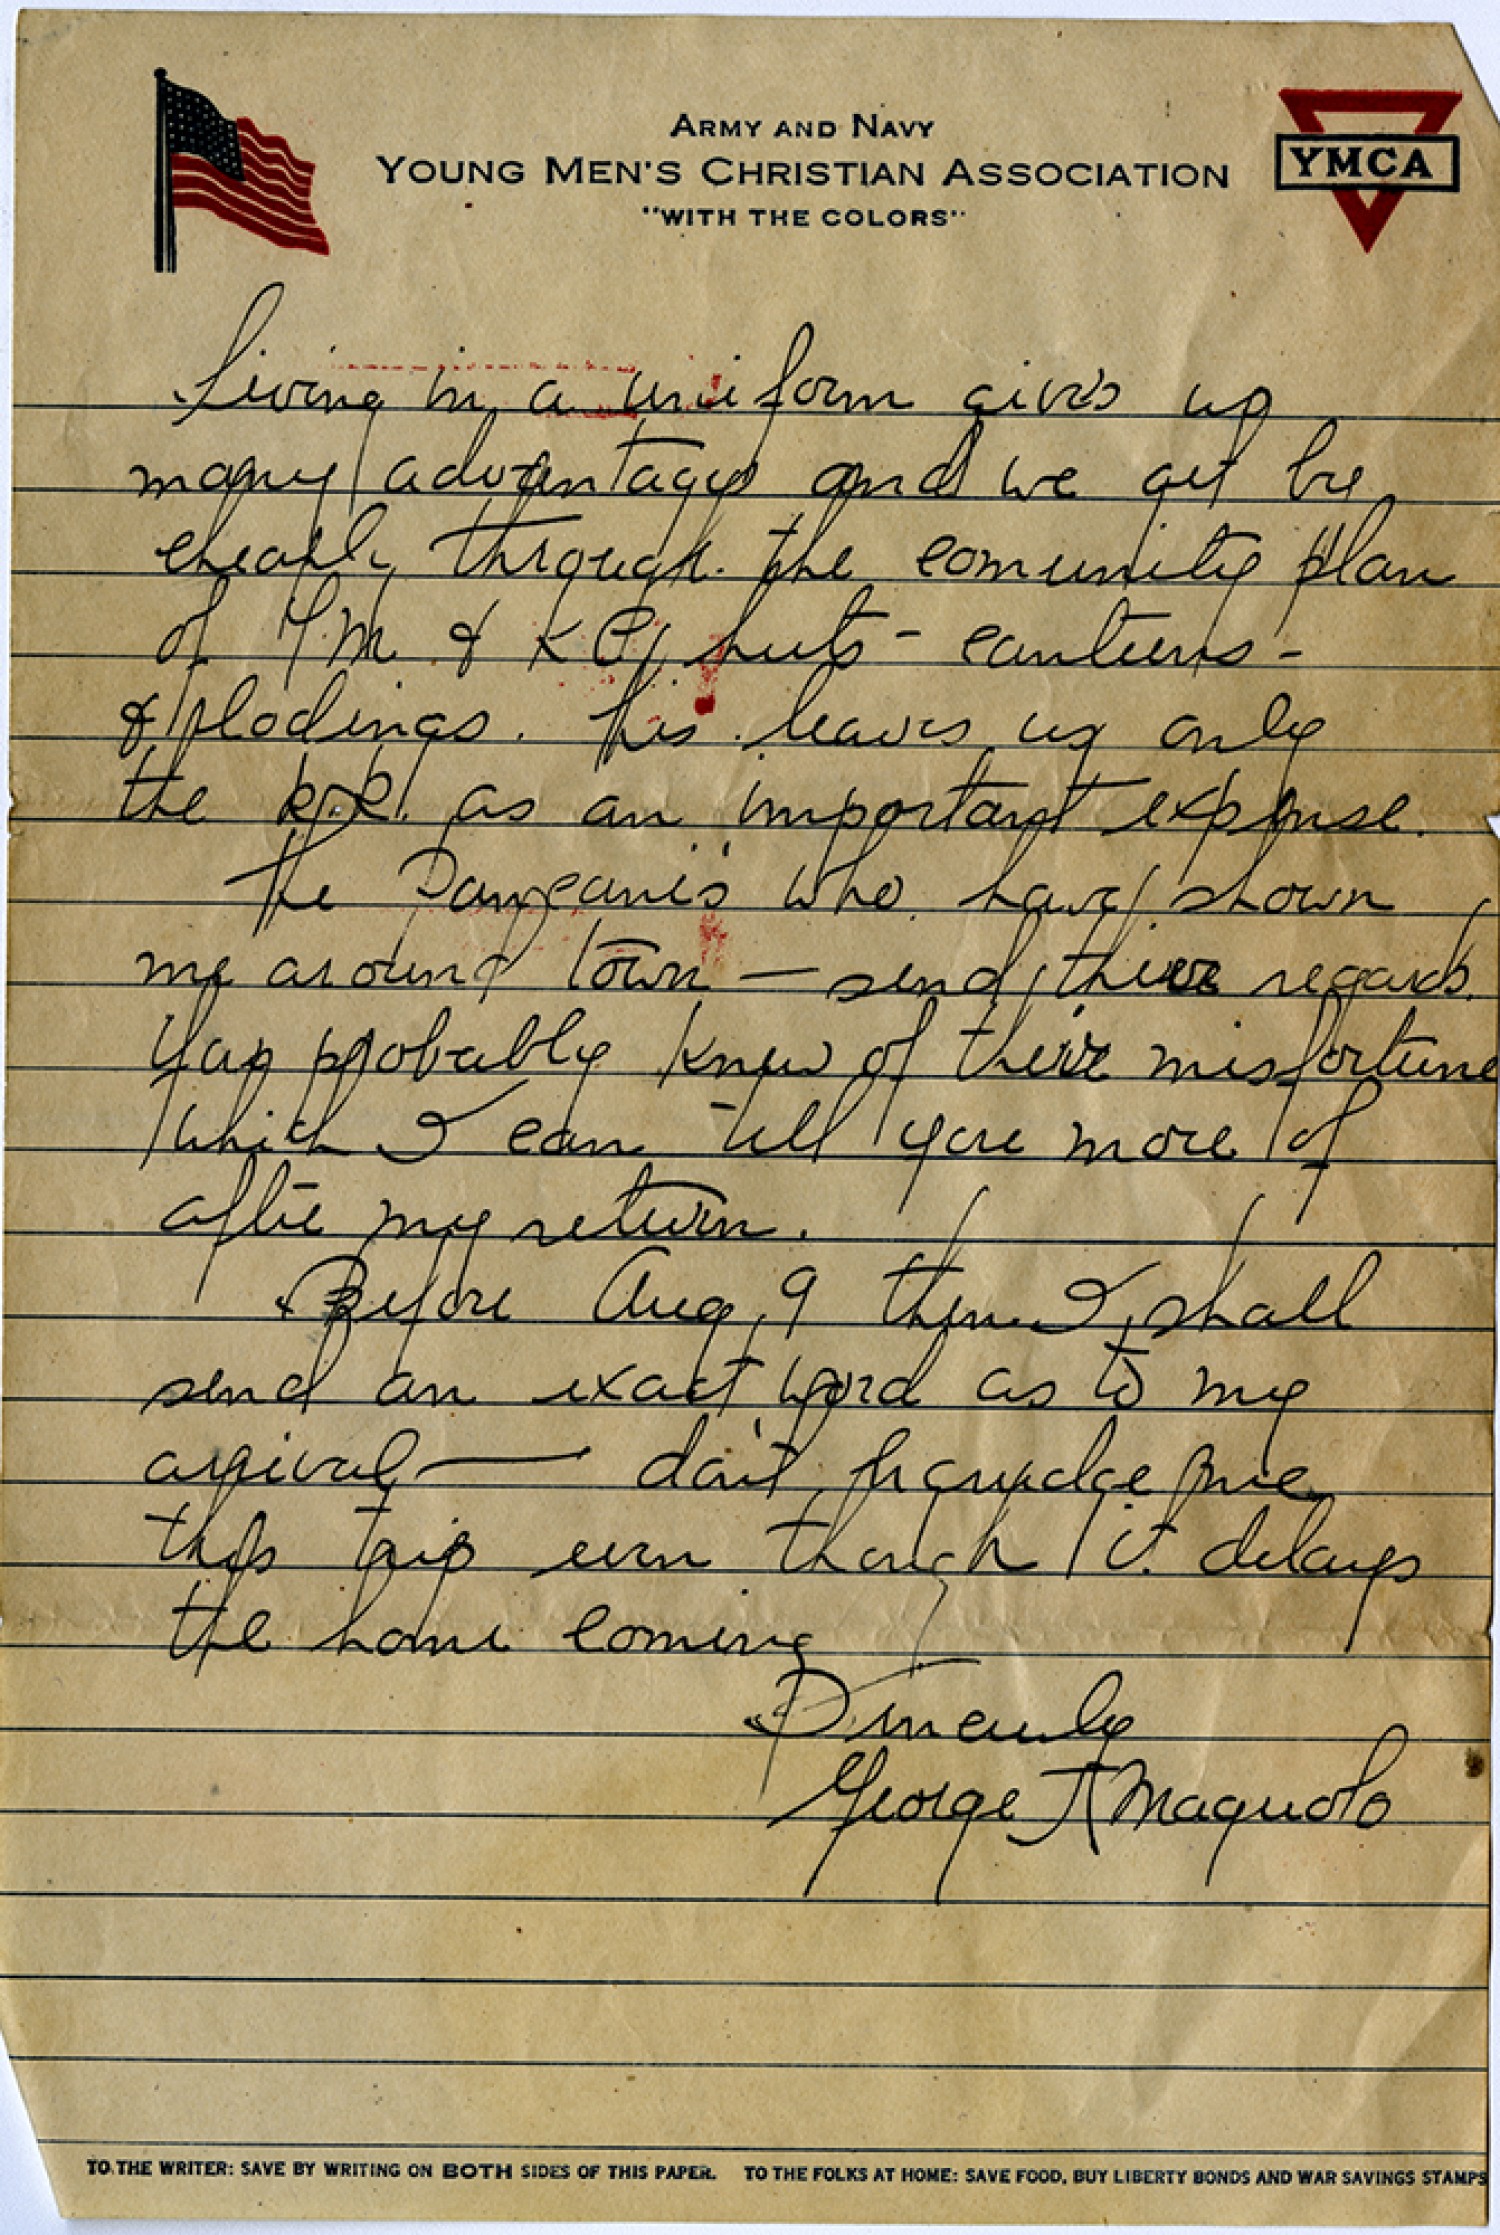 ARMY AND NAVY
YOUNG MEN'S CHRISTIAN ASSOCIATION
"WITH THE COLORS"
YMCA
Living in a uniform gives us
many advantages and we get by
cheaply through the comunity plan
of Y.M. & KC huts - canteens -
& lodings. This leaves us only
the R.R. as an important expense.
The who have shown
me around town — send their regards.
You probably knew of their misfortune
which I can tell you more of
after my return.
Before Aug 9 then I shall
send an exact word as to my
arrival — don't begrudge me
this trip even though it delays
the home coming
Sincerely
George A Maquolo
TO THE WRITER: SAVE BY WRITING ON BOTH SIDES OF THIS PAPER. TO THE FOLKS AT HOME: SAVE FOOD, BUY LIBERTY BONDS AND WAR SAVINGS STAMPS